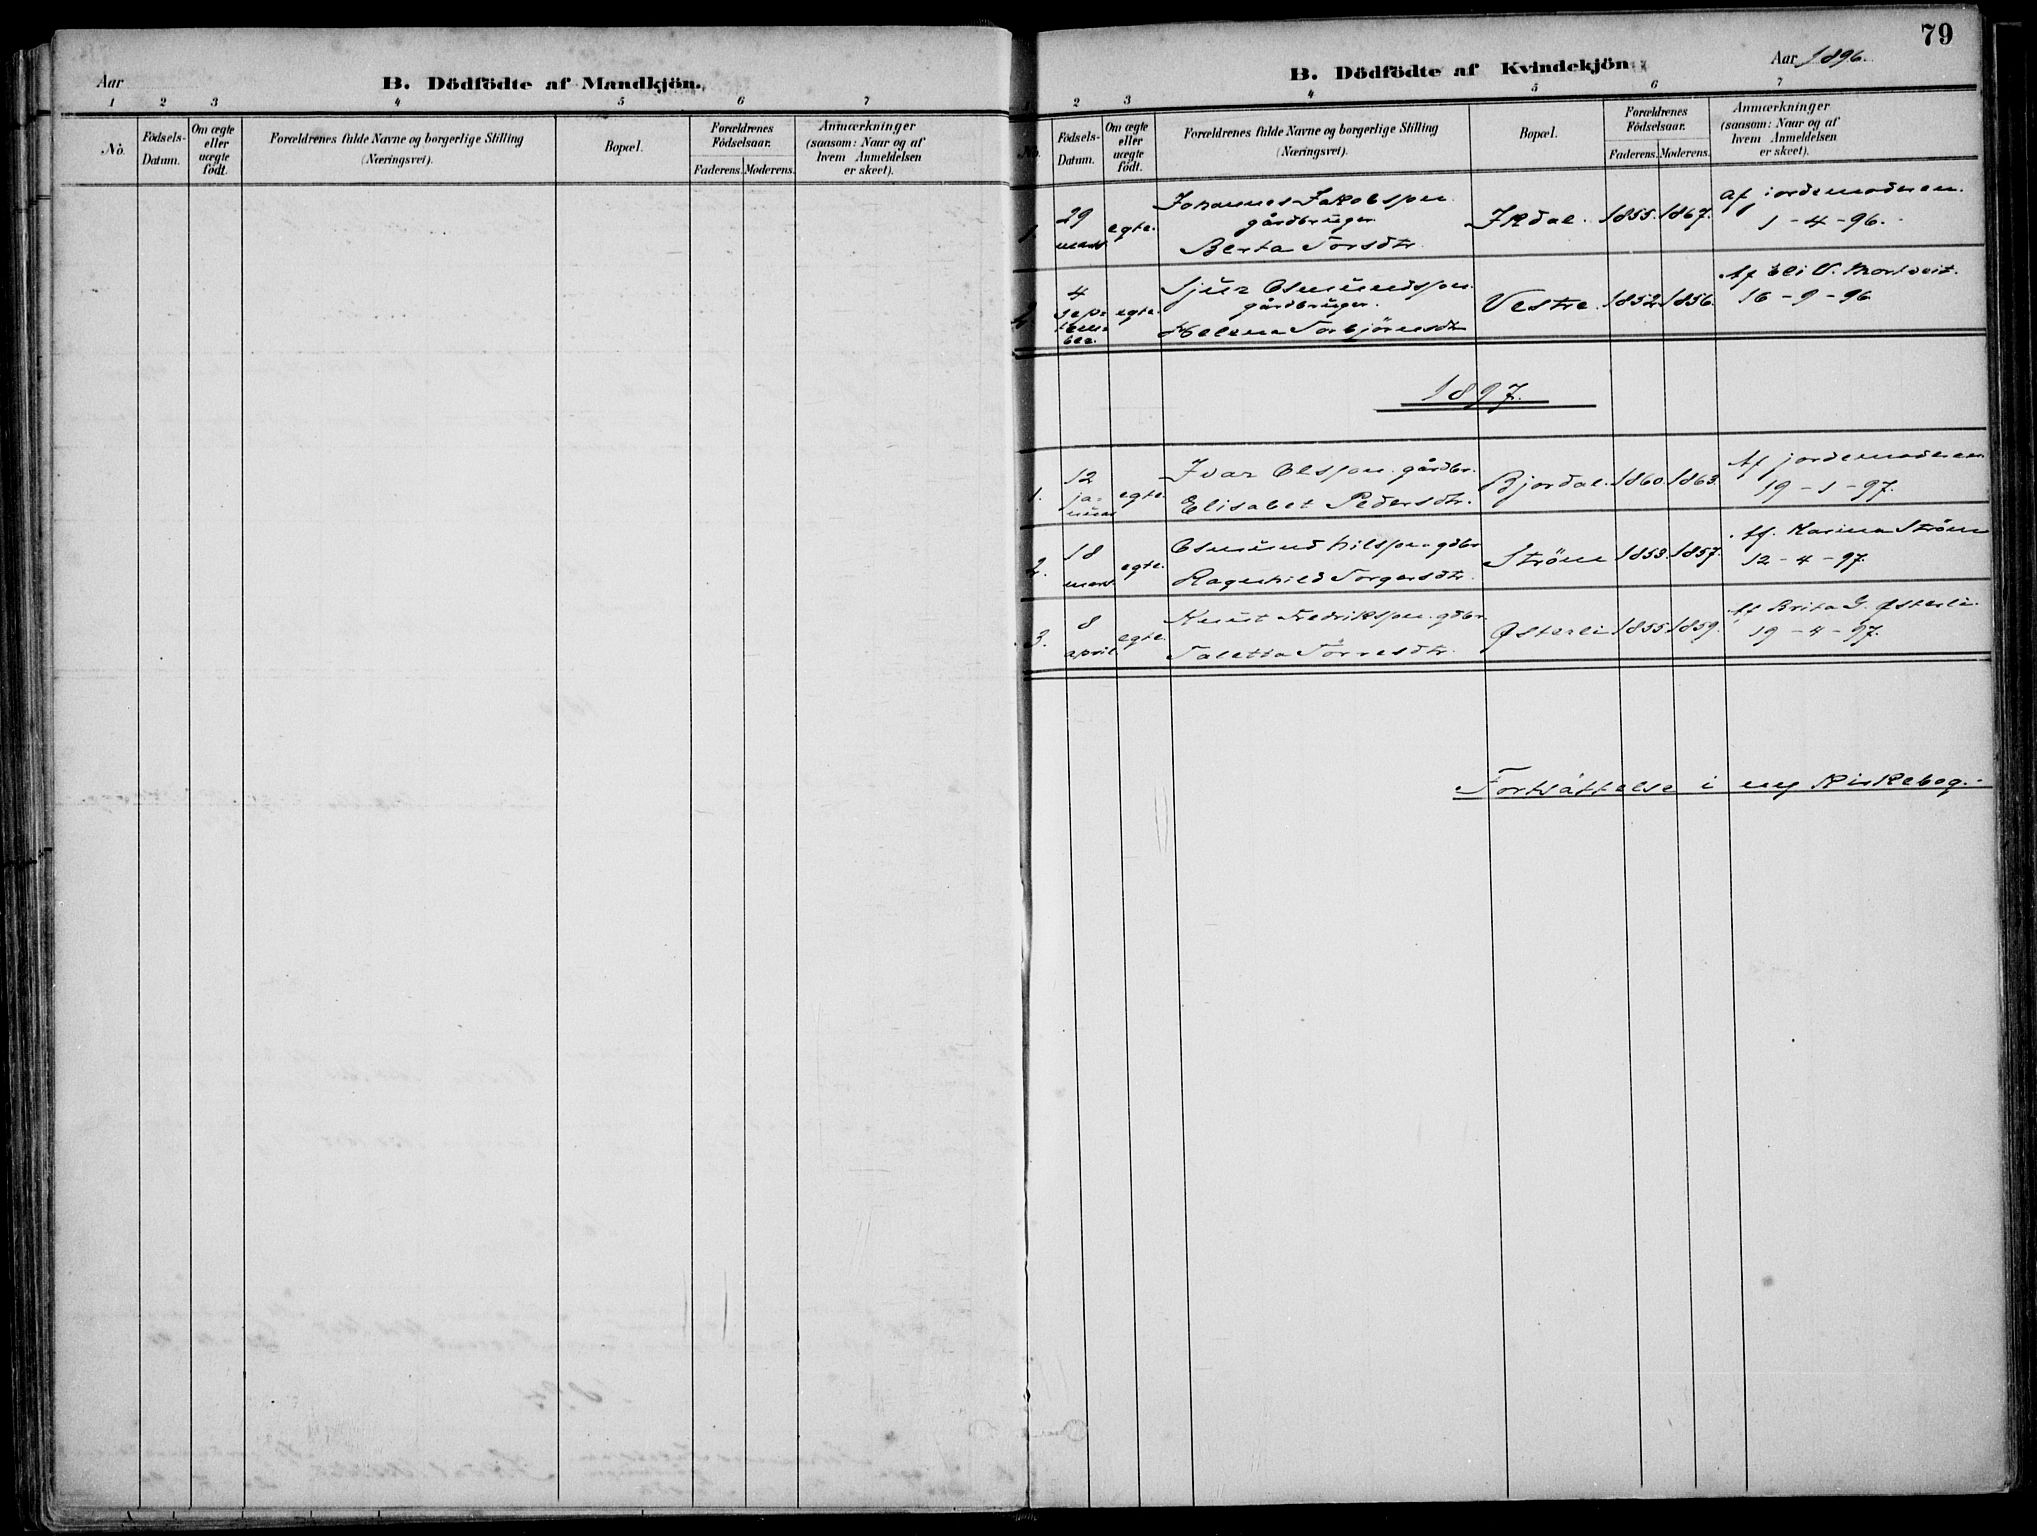 Aar
B. Dödfödte af Mandkjön.
1 2 3 4 5 6 7
No. Födsels-Datum. Om ægte eller uægte födt. Forældrenes fulde Navne og borgerlige Stilling (Næringsvei). Bopæl. Forældrenes Födselsaar. Faderens. Moderens. Anmærkninger (saasom: Naar og af hvem Anmeldelsen er skeet).
79
B. Dödfödte af Kvindekjön
Aar 1896.
1 2 3 4 5 6 7
No. Födsels-Datum. Om ægte eller uægte födt. Forældrenes fulde Navne og borgerlige Stilling (Næringsvei). Bopæl. Forældrenes Födselsaar. Faderens. Moderens. Anmærkninger (saasom: Naar og af hvem Anmeldelsen er skeet).
1. 29 mars egte. Johannes Jakobssen gårdbruger Berta Torsdtr. Ikdal. 1855. 1867. Af jordemoderen. 1-4-96.
2. 4 september egte. Sjur Osmundssen gårdbruger. Helena Torbjörnsdtr Vestre. 1852. 1856. Af Eli V. 16-9-96
1897.
1. 12 januar egte. Ivar Olssen. gårdbr. Elisabet Pedersdtr. Bjordal. 1860. 1863. Af jordemoderen 19-1-97.
2. 18 mars egte. Osmund Nilssen gdbr Ragnhild Torgersdtr. Ström 1853. 1857. Af. Karina Ström 12-4-97.
3. 8 april. egte. Knut Fredrikssen. gdbr. Taletta Torresdtr. Østerli 1855. 1859. Af Brita G. Østerli. 19-4-97.
Fortsättelse i ny Kirkebog.